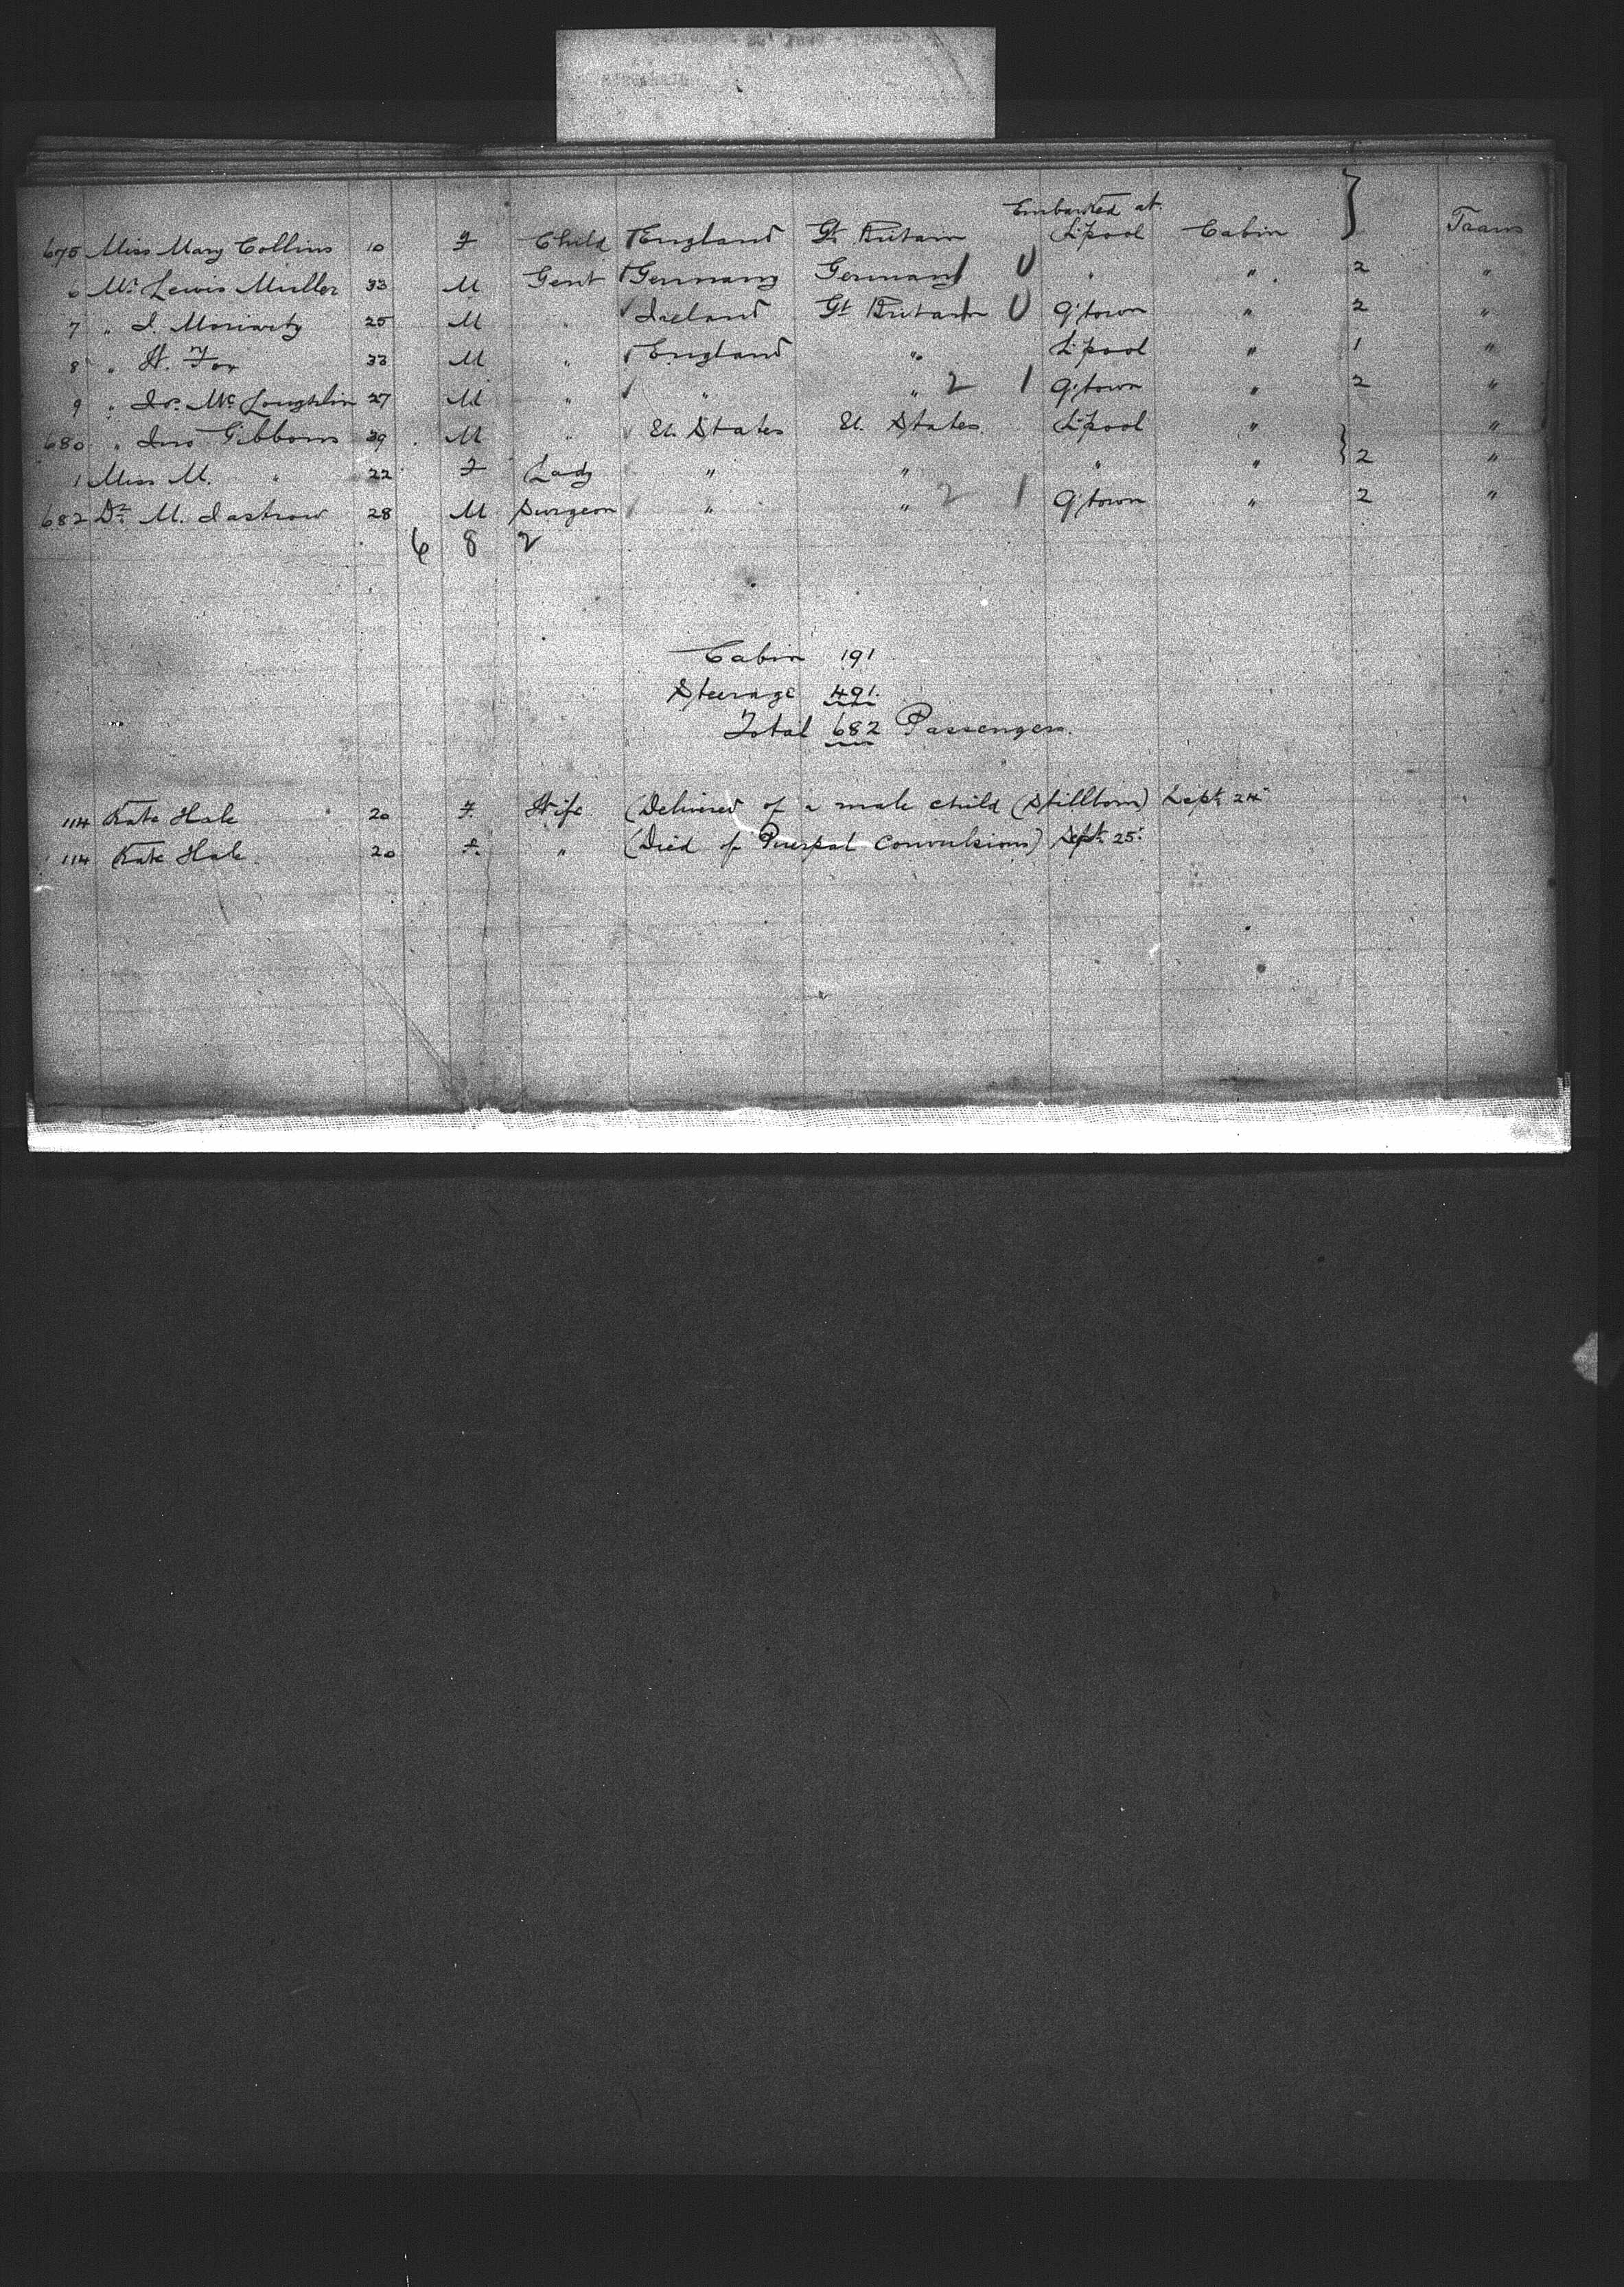 Embarked at
675 Miss Mary Collins 10 F Child England Gt. Britain L'pool Cabin } Trans
6 Mr. Lewis Muller 33 M Gent Germany Germany " " 2 "
7 " J. Moriarty 25 M " Ireland Gt Britain Q'town " 2 "
8 " H. Fox 33 M " England " L'pool " 1 "
9 " McLoughlin 27 M " " " 2 1 Q'town " 2 "
680 " Jno Gibbons 39 M " U. States U. States L'pool " "
1 Miss M. " 22 F Lady " " " " } 2 "
682 Dr. M. Jastrow 28 M Surgeon " " 2 1 Q'town " 2 "
6 8 2
Cabin 191
Steerage 491.
Total 682 Passengers.
114 Kate Hale 20 F. Wife (Delivered of a male child (Stillborn) Sept. 24
114 Kate Hale. 20 f. " (Died of Puerpal Convulsions) Sept. 25